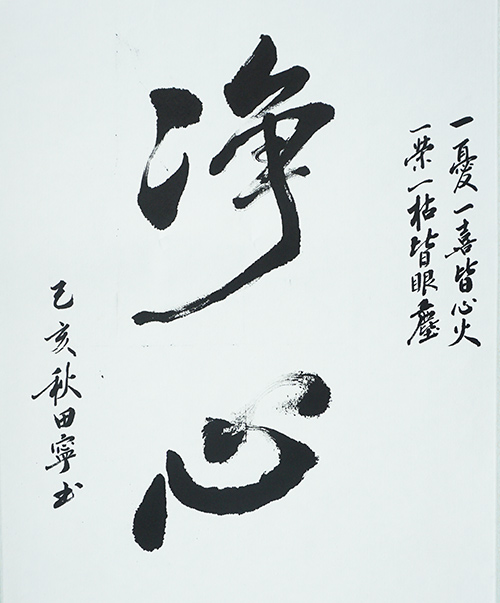 一憂一喜皆心火
一荣一枯皆眼塵
净心
己亥秋田寧书